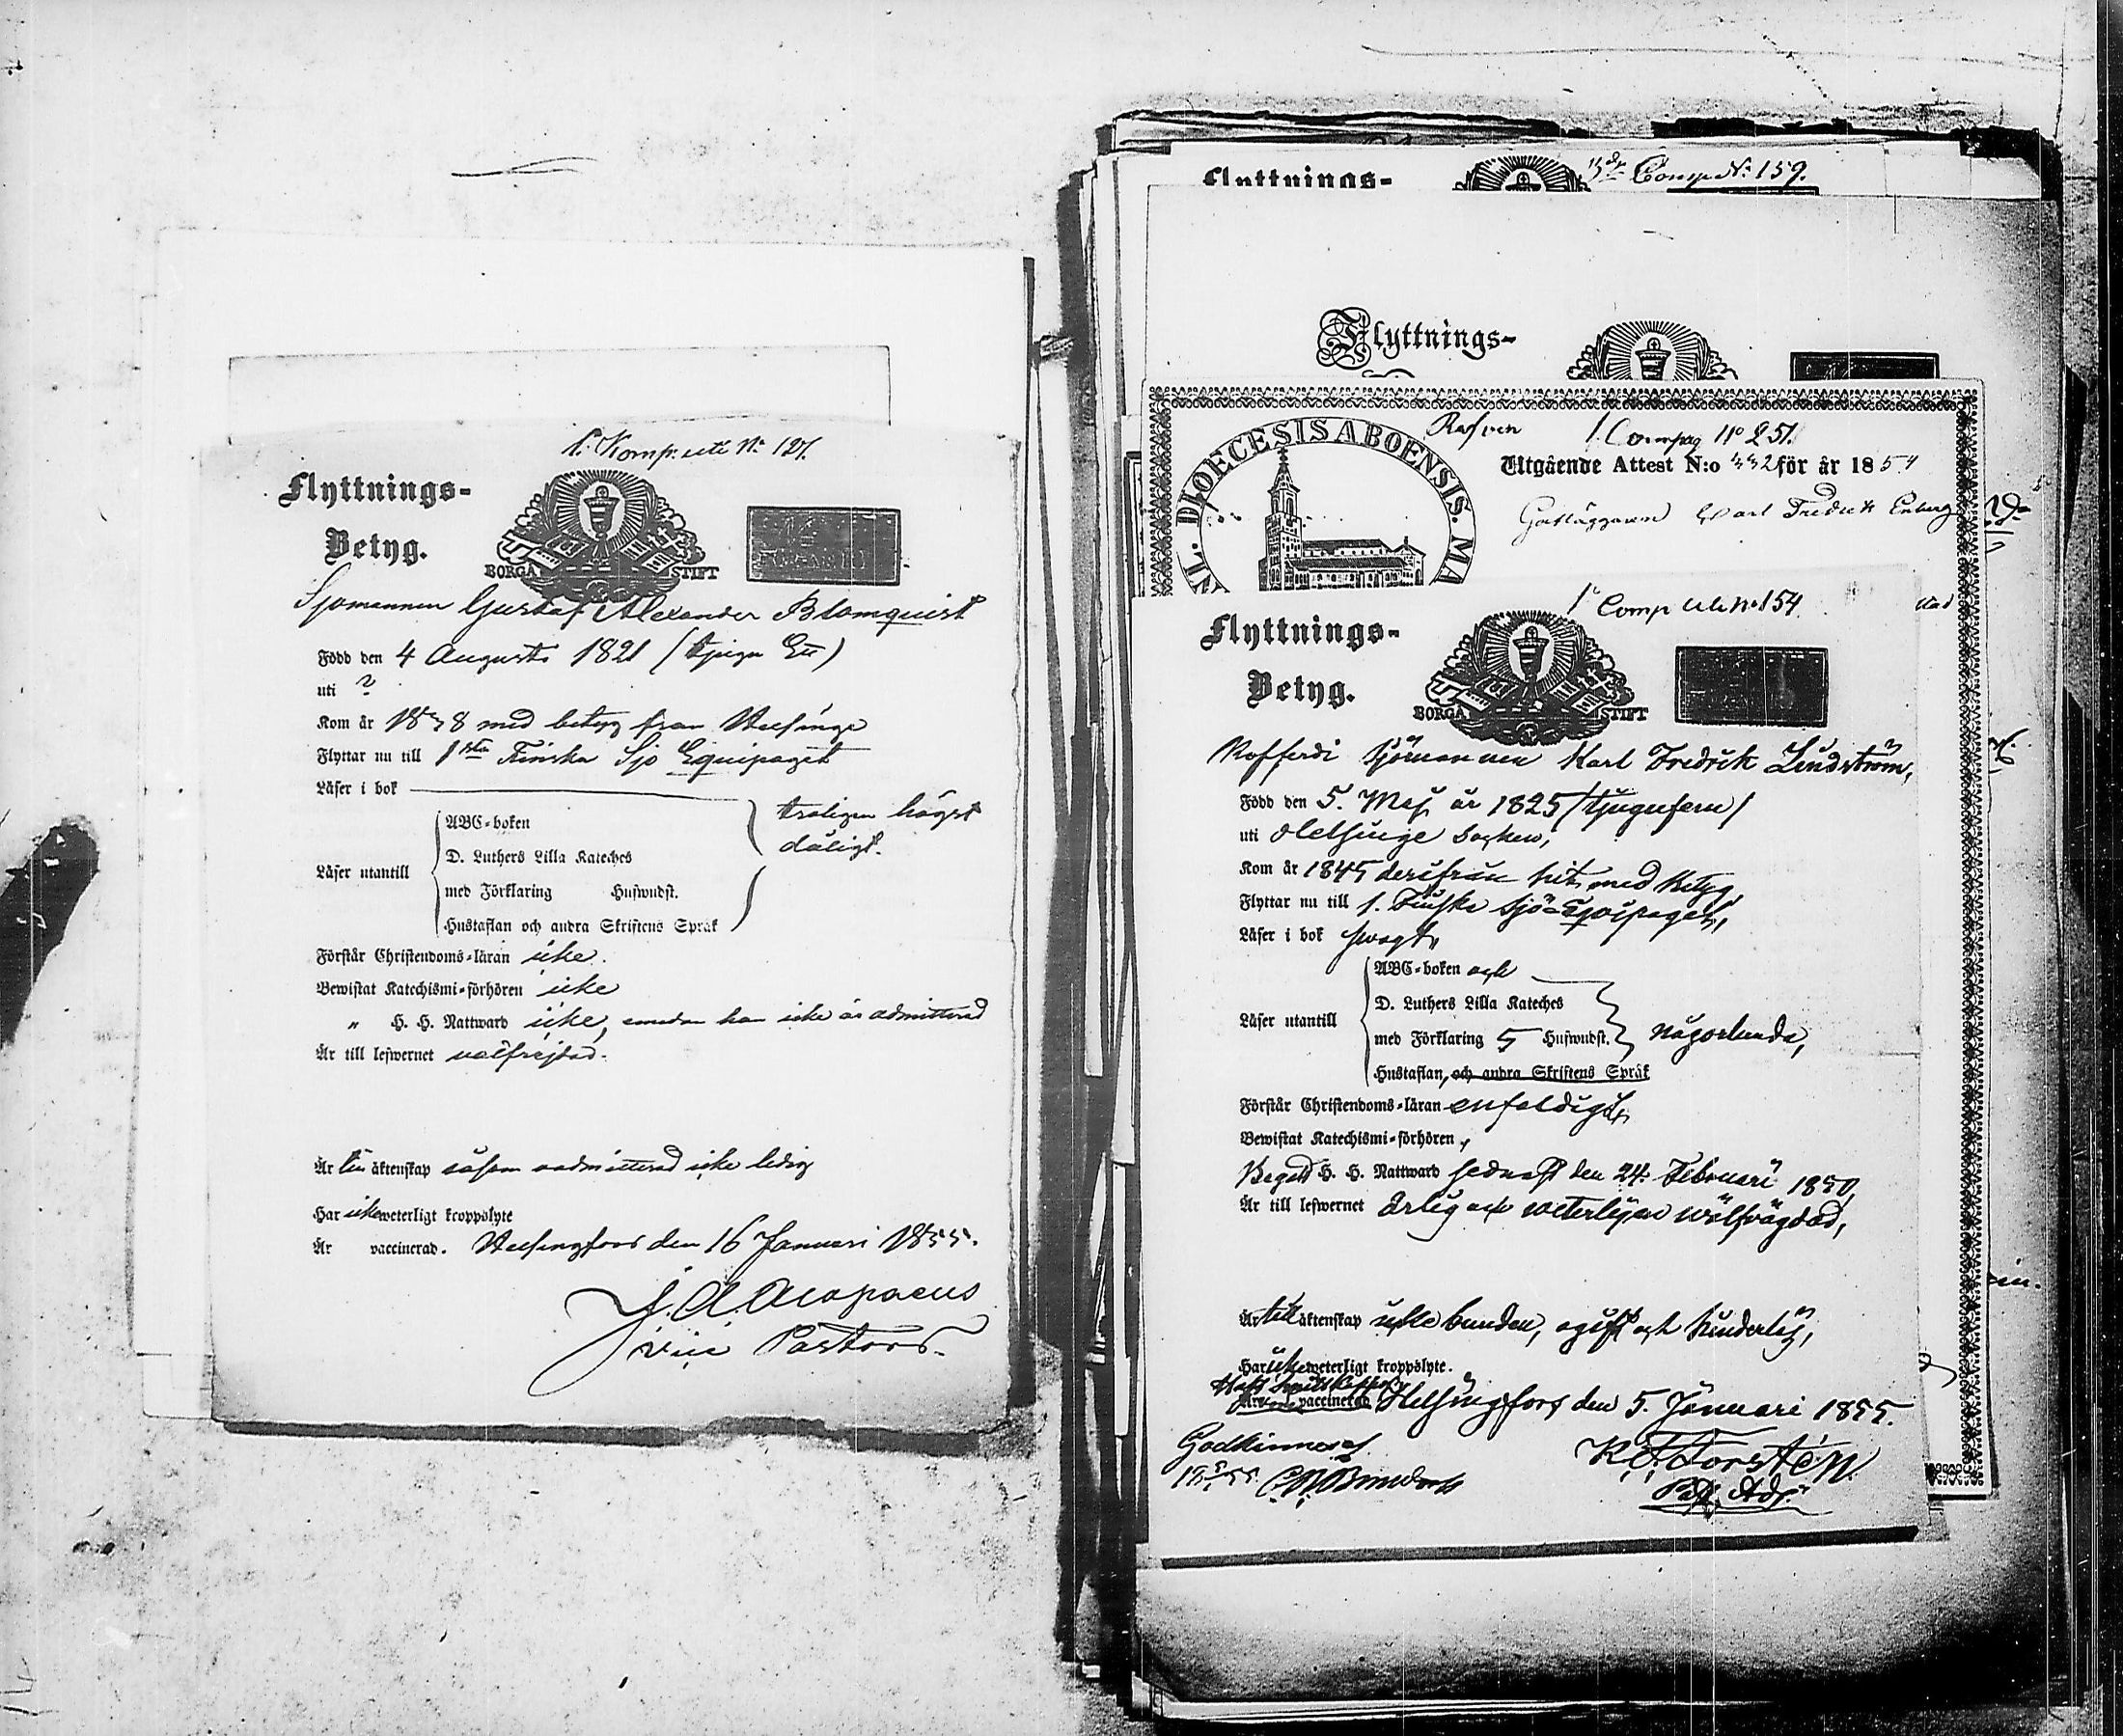 1. Komp. uti No 127.
Flyttnings-
Betyg.
BORGÅ STIFT
Sjömannen Gustaf Alexander Blomquist
Född den 4 Augusti 1821 (tjugu Ett)
uti ?
Kom år 1838 med betyg från Helsinge
Flyttar nu till 1sta Finska Sjö Equipaget
Läser i bok
ABC-boken
D. Luthers Lilla Kateches
Läser utantill
med Förklaring Huswudst.
Hustaflan och andra Skriftens Språk
troligen högst
dåligt.
Förstår Christendoms-läran icke.
Bewistat Katechismi-förhören icke
" H. H. Nattward icke, emedan han icke är admitterad
Är till lefwernet välfrejdad.
Är till äktenskap såsom oadmitterad icke ledig
Har icke weterligt kroppslyte
Är vaccinerad. Helsingfors den 16 Januari 1855.
J. A. Alopaeus
vice Pastor
Flyttnings-
Comp No 159.
Flyttnings-
DIOECESIS ABOENSIS. MA
1. Compag No 251.
Utgående Attest N:o 332 för år 1854
Carl Fredrik Enberg
1 Comp uti No 154
Flyttnings-
Betyg.
BORGÅ STIFT
Kofferdi Sjömannen Karl Fredrik Lindström,
Född den 5. Maj år 1825 /tjugufem/
uti Helsinge Socken,
Kom år 1845 derifrån hit med Betyg,
Flyttar nu till 1. Finska Sjö-Eqvipaget,
Läser i bok swagt,
ABC-boken och
D. Luthers Lilla Kateches
Läser utantill
med Förklaring 5 Huswudst.
Hustaflan, och andra Skriftens Språk
någorlunda,
Förstår Christendoms-läran enfaldigt,
Bewistat Katechismi-förhören,
Begått H. H. Nattward sednast den 24. Februari 1850,
Är till lefwernet ärlig och weterligen wälfrägdad,
Är till äktenskap icke bunden, ogift och hinderlös,
Har icke weterligt kroppslyte.
Haft
Är vaccinerad Helsingfors den 5. Januari 1855.
Godkännes
K. F. Forstén
Past. Adj.